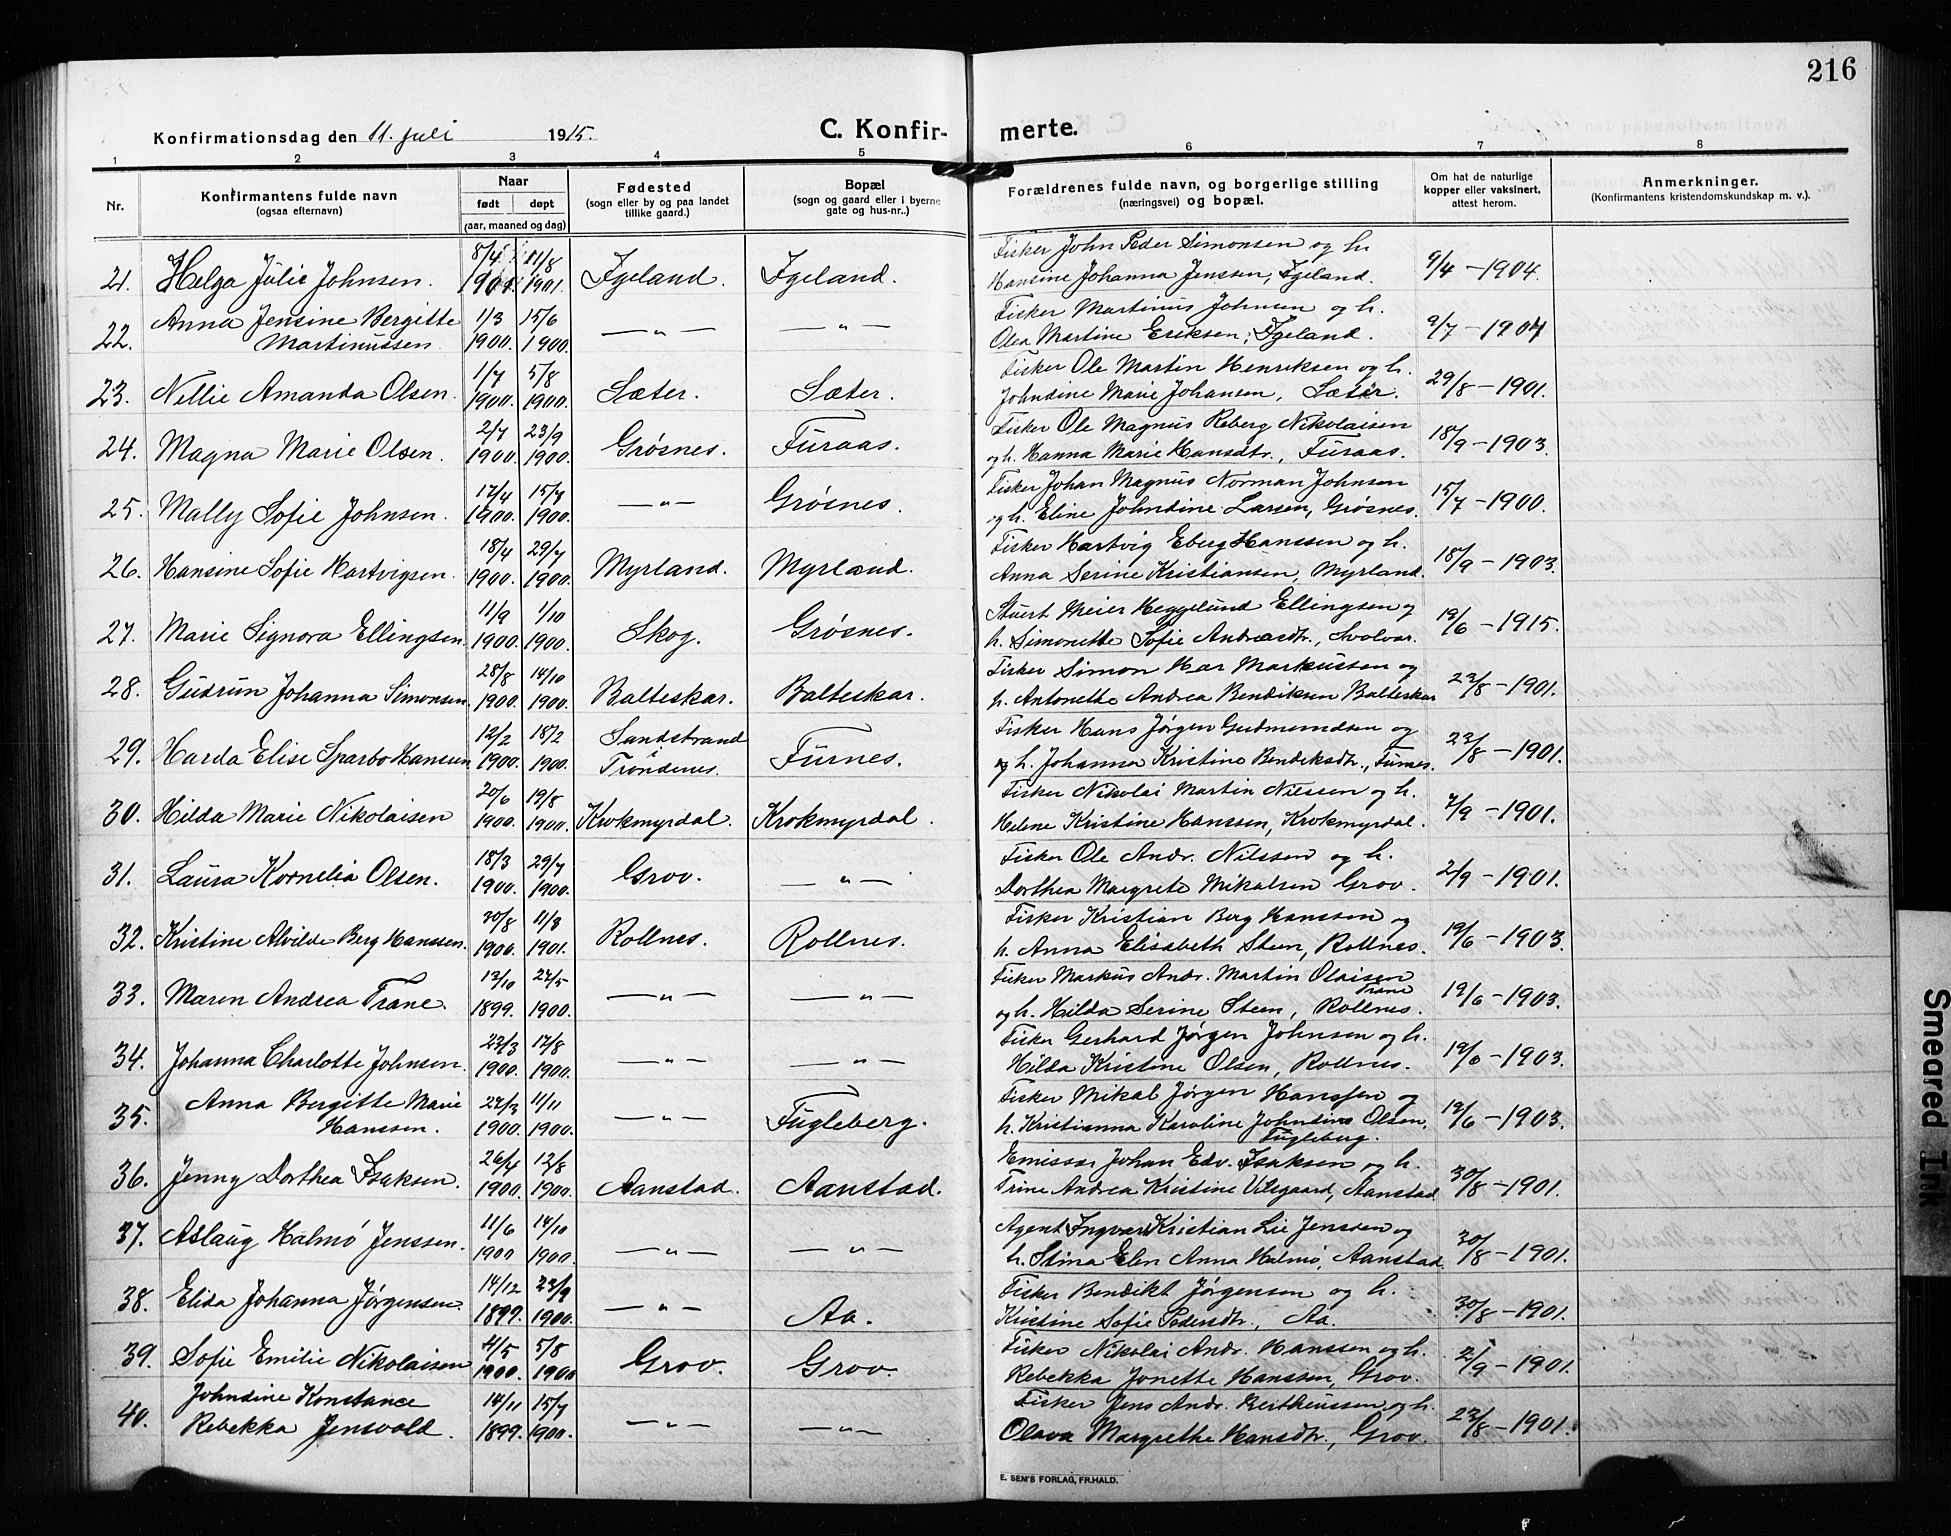 216
Konfirmationsdag den 11. juli 1915.
C. Konfirmerte.
1 2 3 4 5 6 7 8
Nr.
Konfirmantens fulde navn
(ogsaa efternavn)
Naar
født døpt
(aar, maaned og dag)
Fødested
(sogn eller by og paa landet
tillike gaard.)
Bopæl
(sogn og gaard eller i byerne
gate og hus-nr..)
Forældrenes fulde navn, og borgerlige stilling
(næringsvei) og bopæl.
Om hat de naturlige
kopper eller vaksinert,
attest herom.
Anmerkninger.
(Konfirmantens kristendomskundskap m. v.).
21. Helga Julie Johnsen. 8/4 1901. 11/8 1901. Igeland. Igeland. Fisker John Peder Simonsen og h. Hansine Johanna Jensen, Igeland. 9/4 - 1904.
22. Anna Jensine Bergitte Martinussen. 1/3 1900. 15/6 1900. —„— —„— Fisker Martinus Johnsen og h. Olea Martine Eriksen, Igeland. 9/7 - 1904
23. Nellie Amanda Olsen. 1/7 1900. 5/8 1900. Sæter. Sæter. Fisker Ole Martin Henriksen og h. Johndine Marie Johansen, Sæter. 29/8 - 1901.
24. Magna Marie Olsen. 2/7 1900. 23/9 1900. Grøsnes. Furaas. Fisker Ole Magnus Reberg Nikolaisen og h. Hanna Marie Hansdtr., Furaas. 18/9 - 1903.
25. Mally Sofie Johnsen. 17/4 1900. 15/7 1900. —„— Grøsnes. Fisker Johan Magnus Norman Johnsen og h. Eline Johndine Larsen, Grøsnes. 15/7 - 1900.
26. Hansine Sofie Hartvigsen. 18/4 1900. 29/7 1900. Myrland. Myrland. Fisker Hartvig Eberg Hanssen og h. Anna Serine Kristiansen, Myrland. 18/9 - 1903.
27. Marie Signora Ellingsen. 11/9 1900. 1/10 1900. Skog. Grøsnes. Stuert Meier Heggelund Ellingsen og h. Simonette Sofie Andreasdtr., Svolvær. 19/6 - 1915.
28. Gudrun Johanna Simonsen. 28/8 1900. 14/10 1900. Balteskar. Balteskar. Fisker Simon Hær Markussen og h. Antonette Andrea Bendiksen Balteskar 23/8 - 1901.
29. Harda Elise Sparbo Hansen 12/2 1900. 18/2 1900. Sandstrand Trondenes. Furnes. Fisker Hans Jørgen Gudmundsen og og h. Johanna Kristine Bendiksdtr., Furnes. 23/8 - 1901.
30. Hilda Marie Nikolaisen 20/6 1900. 19/8 1900. Krokmyrdal. Krokmyrdal. Fisker Nikolai Martin Nilssen og h. Helene Kristine Hanssen, Krokmyrdal. 7/9 - 1901.
31. Laura Kornelia Olsen. 18/3 1900. 29/7 1900. Grov. —„— Fisker Ole Andr. Nilssen og h. Dorthea Margrete Mikalsen Grov. 2/9 - 1901.
32. Kristine Alvilde Berg Hanssen. 30/8 1900. 11/8 1901. Rollnes. Rollnes. Fisker Kristian Berg Hanssen og h. Anna Elisabeth Steen, Rollnes. 19/6 - 1903.
33. Maren Andrea Trane. 13/10 1899. 27/5 1900. —„— —„— Fisker Markus Andr. Martin Olaisen Trane og h. Hilda Serine Steen, Rollnes. 19/6 - 1903.
34. Johanna Charlotte Johnsen. 23/3 1900. 12/8 1900. —„— —„— Fisker Gerhard Jørgen Johnsen og h. Hilda Kristine Olsen, Rollnes. 19/6 - 1903.
35. Anna Bergitte Marie Hanssen. 27/3 1900. 11/11 1900. —„— Fugleberg. Fisker Mikal Jørgen Hanssen og h. Kristianna Karoline Johndine Olsen, Fugleberg. 19/6 - 1903.
36. Jenny Dorthea Isaksen. 26/4 1900. 12/8 1900. Aanstad. Aanstad. Emissær Johan Edv. Isaksen og h. Trine Andrea Kristine Vilsgaard, Aanstad 30/8 - 1901.
37. Aslaug Halmø Jenssen. 11/6 1900 14/10 1900. —„— —„— Agent Ingvar Kristian Lie Jenssen og h. Stina Elen Anna Halmø, Aanstad. 30/8 - 1901.
38. Elida Johanna Jørgensen 14/12 1899. 23/9 1900. —„— Aa. Fisker Bendikt Jørgensen og h. Kristine Sofie Pedersdtr., Aa. 30/8 - 1901.
39. Sofie Emilie Nikolaisen 4/5 1900. 5/8 1900 Grov. Grov. Fisker Nikolai Andr. Hanssen og h. Rebekka Jonette Hanssen, Grov. 2/9 - 1901.
40. Johndine Konstance Rebekka Jensvold. 14/11 1899. 15/7 1900. —„— —„— Fisker Jens Andr. Bertheussen og h. Olava Margrethe Hansdtr., Grov. 23/8 - 1901.
E. SEM'S FORLAG, FR.HALD.
Smeared Ink